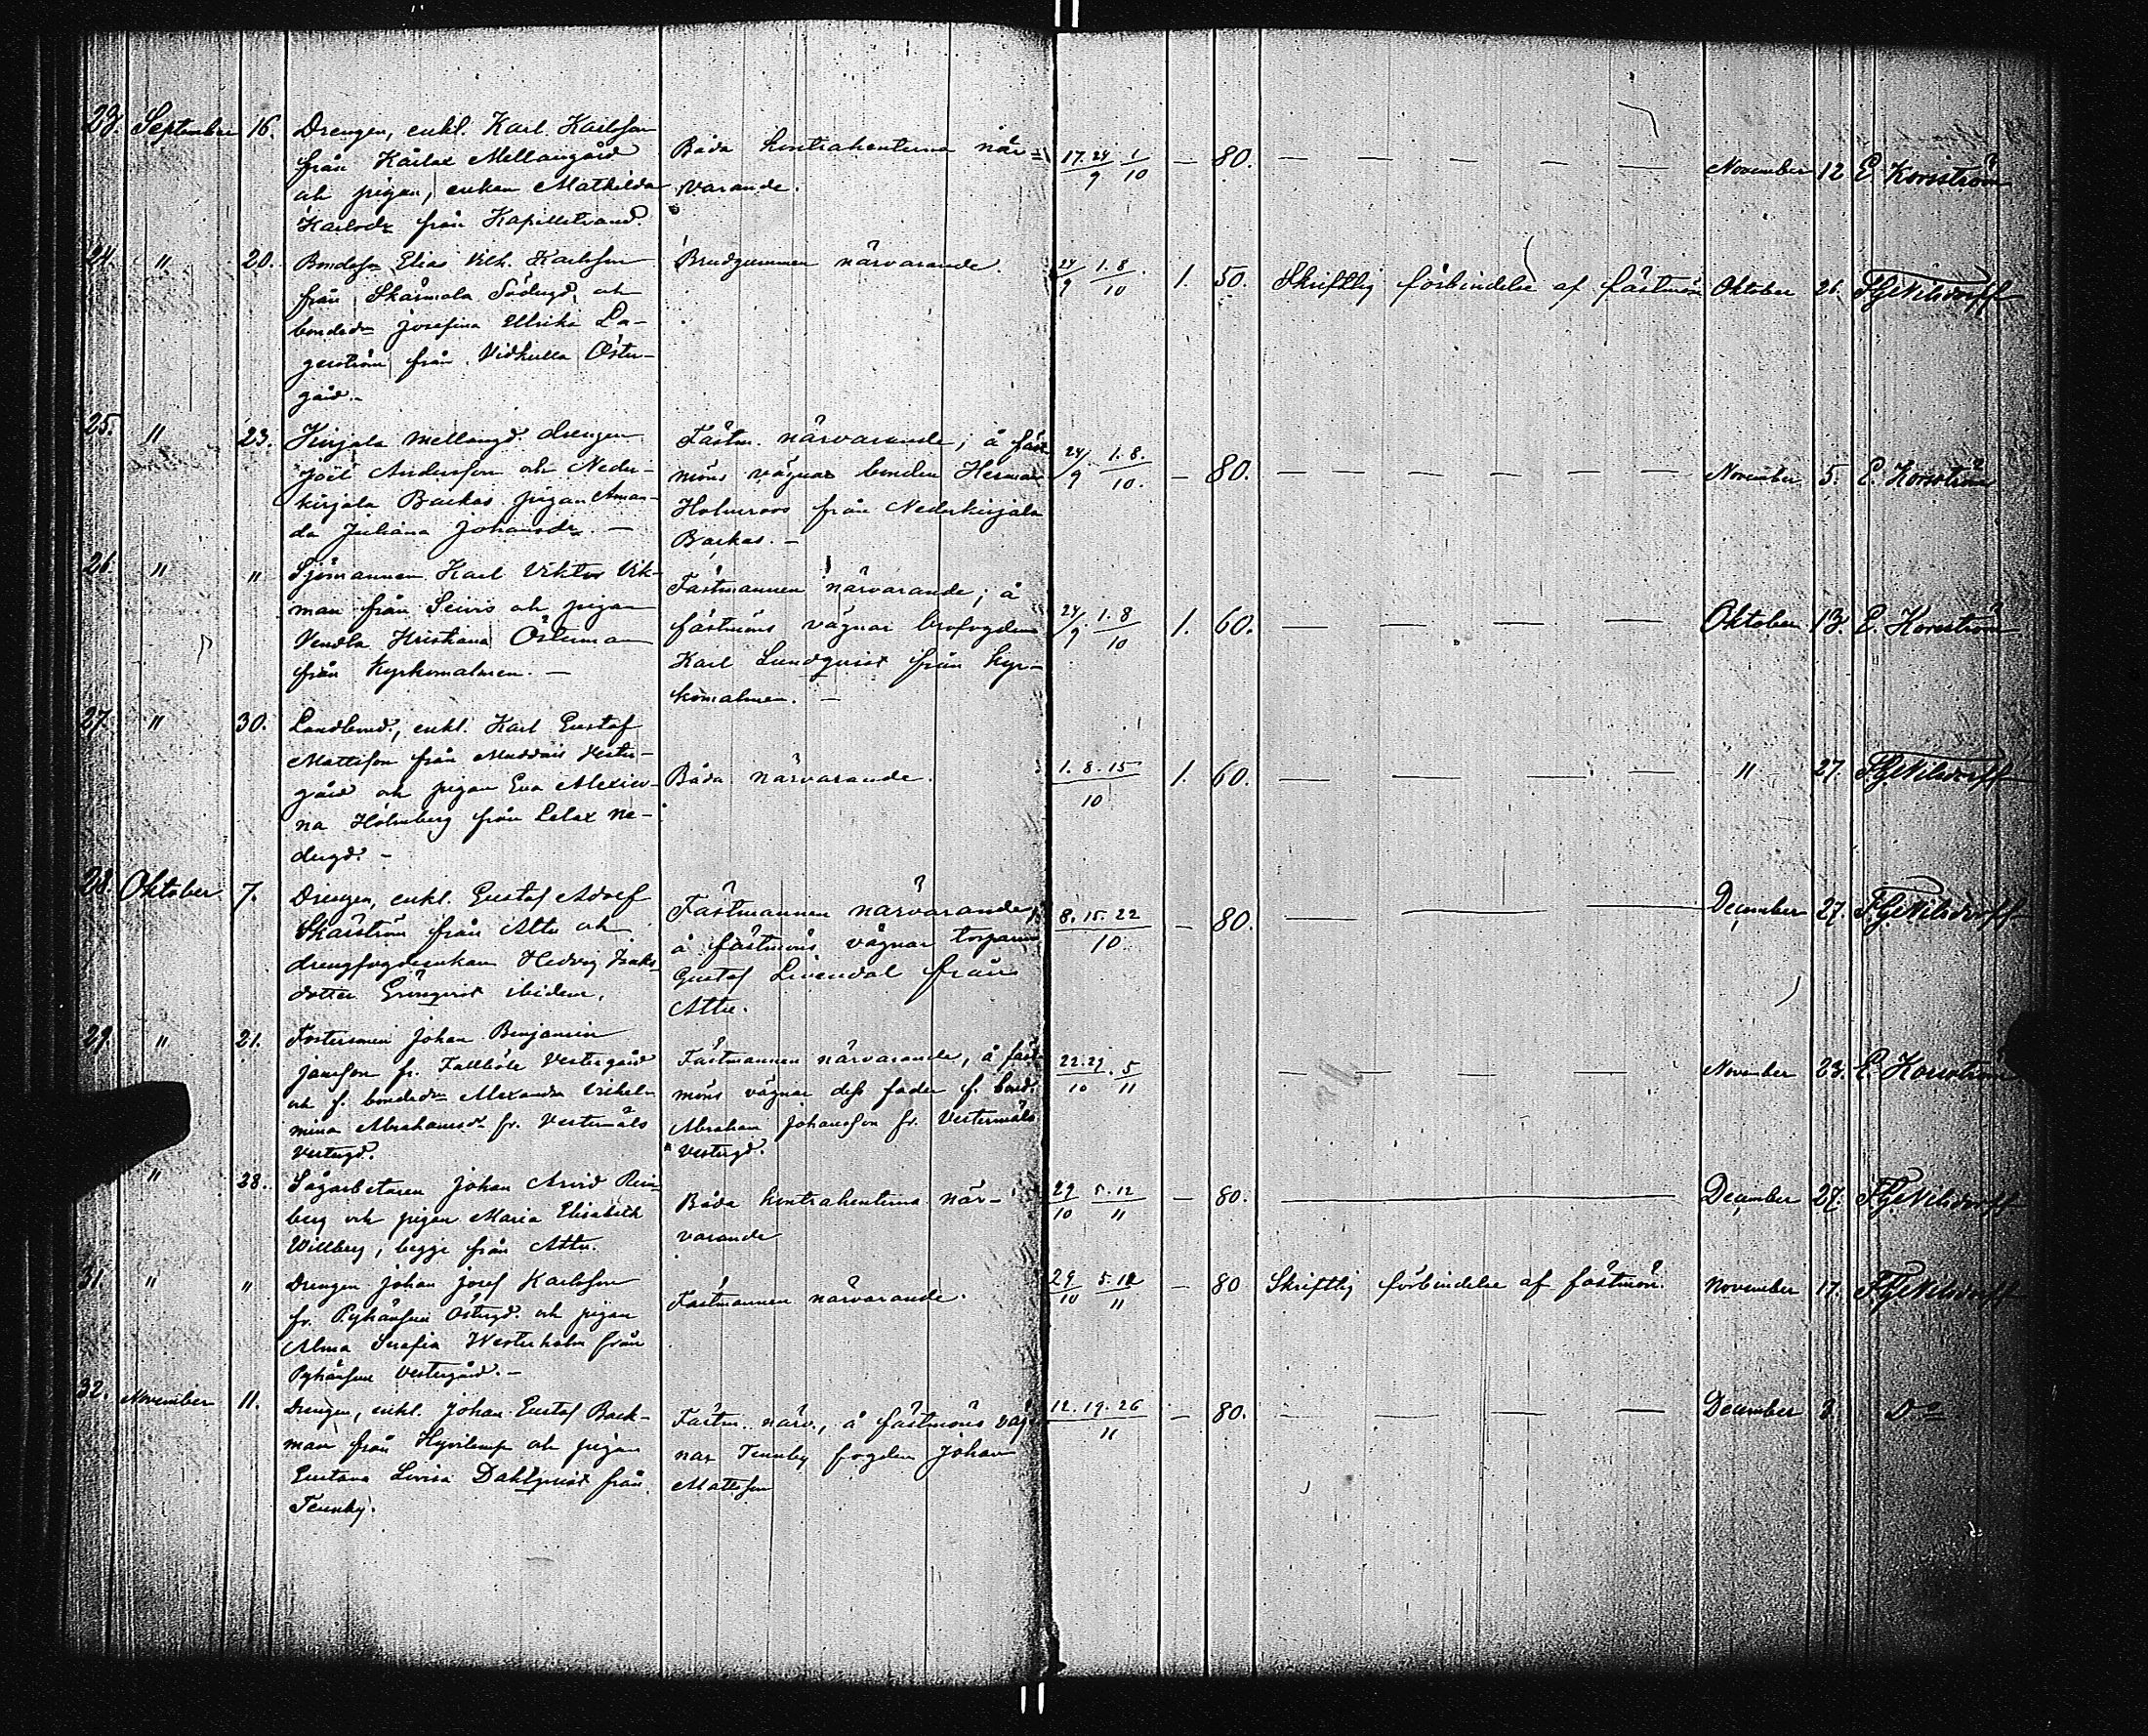 23. September 16. Drengen, enkl. Karl Karlsson
från Kärlax Mellangård
och pigan, enkan Mathilda
Karlsdr från Kapellstrand.
Båda kontrahenterna när-
varande.
17.24/9 1/10 — 80. — — — — — November 12 E. Korsström
24. " 20. Bondeson Elias Vilh. Karlsson
från Skärmola Södergd. och
bondedr Josefina Ulrika La-
gerström från Vidkulla Öster-
gård.
Brudgummen närvarande.
24/9 1.8/10. 1. 50. Skriftlig förbindelse af fästmön Oktober 26. F.G. Nilsdorff
25. " 23. Kirjala mellangd. drengen
Joel Andersson och Neder-
kirjala Backas pigan Aman-
da Juliana Johansdr. —
Fästm. närvarande; å fäst-
möns vägnar bonden Herman
Holmroos från Nederkirjala
Backas. —
24/9. 1.8./10. — 80. — — — — — — November 5. E. Korsström
26. " " Sjömannen Karl Viktor Vik-
man från Seivis och pigan
Vendla Kristiana Österman
från Kyrkomalmen. —
Fästmannen närvarande; å
fästmöns vägnar brofogden
Karl Lundqvist från Kyr-
komalmen. —
24/9. 1.8/10 1. 60. — — — — Oktober 13. E. Korsström
27. " 30. Landbond., enkl. Karl Gustaf
Mattsson från Muddais Vester-
gård och pigan Eva Alexien-
na Holmberg från Lelax ne-
dergd. —
Båda närvarande.
1. 8. 15/10 1. 60. — — — — " 27. F.G. Nilsdorff
28. Oktober 7. Drengen, enkl. Gustaf Adolf
Skärström från Attu och
drengfogdeenkan Hedvig Isaks-
dotter Grönqvist ibidem.
Fästmannen närvarande;
å fästmöns vägnar torparen
Gustaf Levendal från
Attu.
8. 15. 22/10 — 80. — — — December 27. F.G. Nilsdorff
29. " 21. Fostersonen Johan Benjamin
Jansson fr. Fallböle Vestergård
och f. bondedr Alexandra Vilhel-
mina Abrahamsdr fr. Vestermäls
vestergd.
Fästmannen närvarande, å fäst-
möns vägnar dess fader f. bond.
Abraham Johansson fr. Vestermäls
vestergd.
22.29/10 . 5/11 — — — — — November 23. E. Korsström
" 28. Sågarbetaren Johan Arvid
berg och pigan Maria Elisabeth
Willberg, begge från Attu.
Båda kontrahenterna när-
varande
29/10 5.12/11 — 80. — December 27. F.G. Nilsdorff
31. " " Drengen Johan Josef Karlsson
fr. Pyhänsu Östergd. och pigan
Alma Serafia Westerholm från
Pyhänsu Vestergård. —
Fästmannen närvarande.
29/10 5.12/11 — 80 Skriftlig förbindelse af fästmön. November 17. F.G. Nilsdorff
32. November 11. Drengen, enkl. Johan Gustaf Back-
man från Hyvilemp och pigan
Gustava Lovisa Dahlqvist från
Tennby.
Fästm. närv., å fästmöns väg-
nar Tennby fogden Johan
Mattsson
12. 19. 26/11 — 80. — — — — — December 3. Do